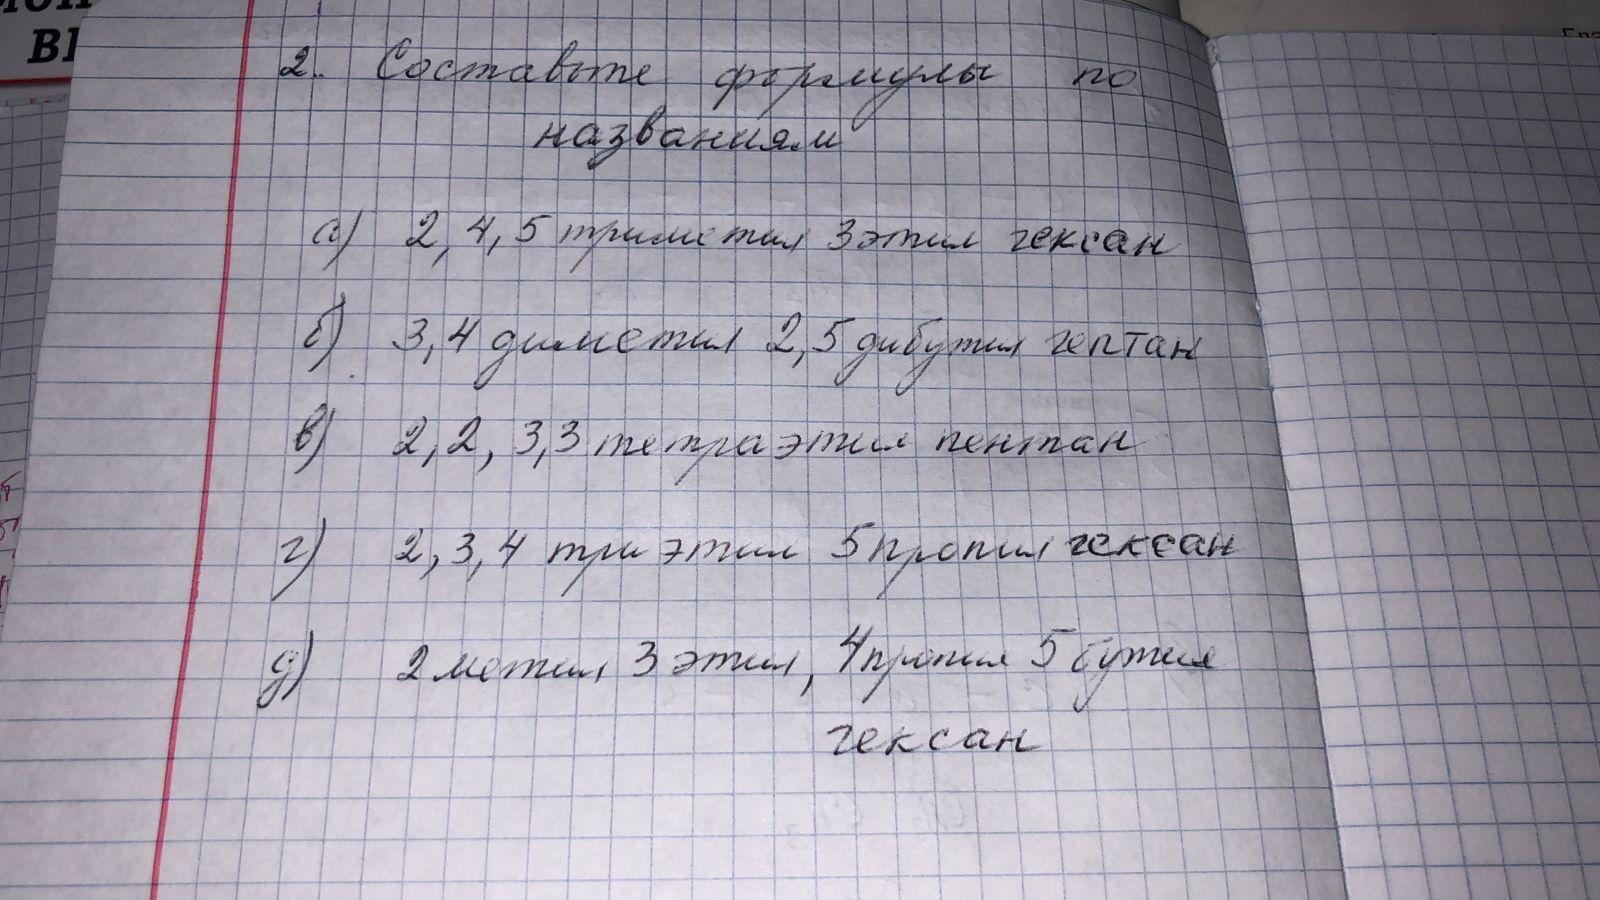 ВІ
2. Составьте формулы по
названиям
а) 2, 4, 5 триметил 3 этил гексан
б) 3,4 диметил 2,5 дибутил гептан
в) 2, 2, 3,3 тетраэтил пентан
г) 2, 3, 4 три этил 5 пропил гексан
д) 2 метил 3 этил, 4 пропил 5 бутил
гексан